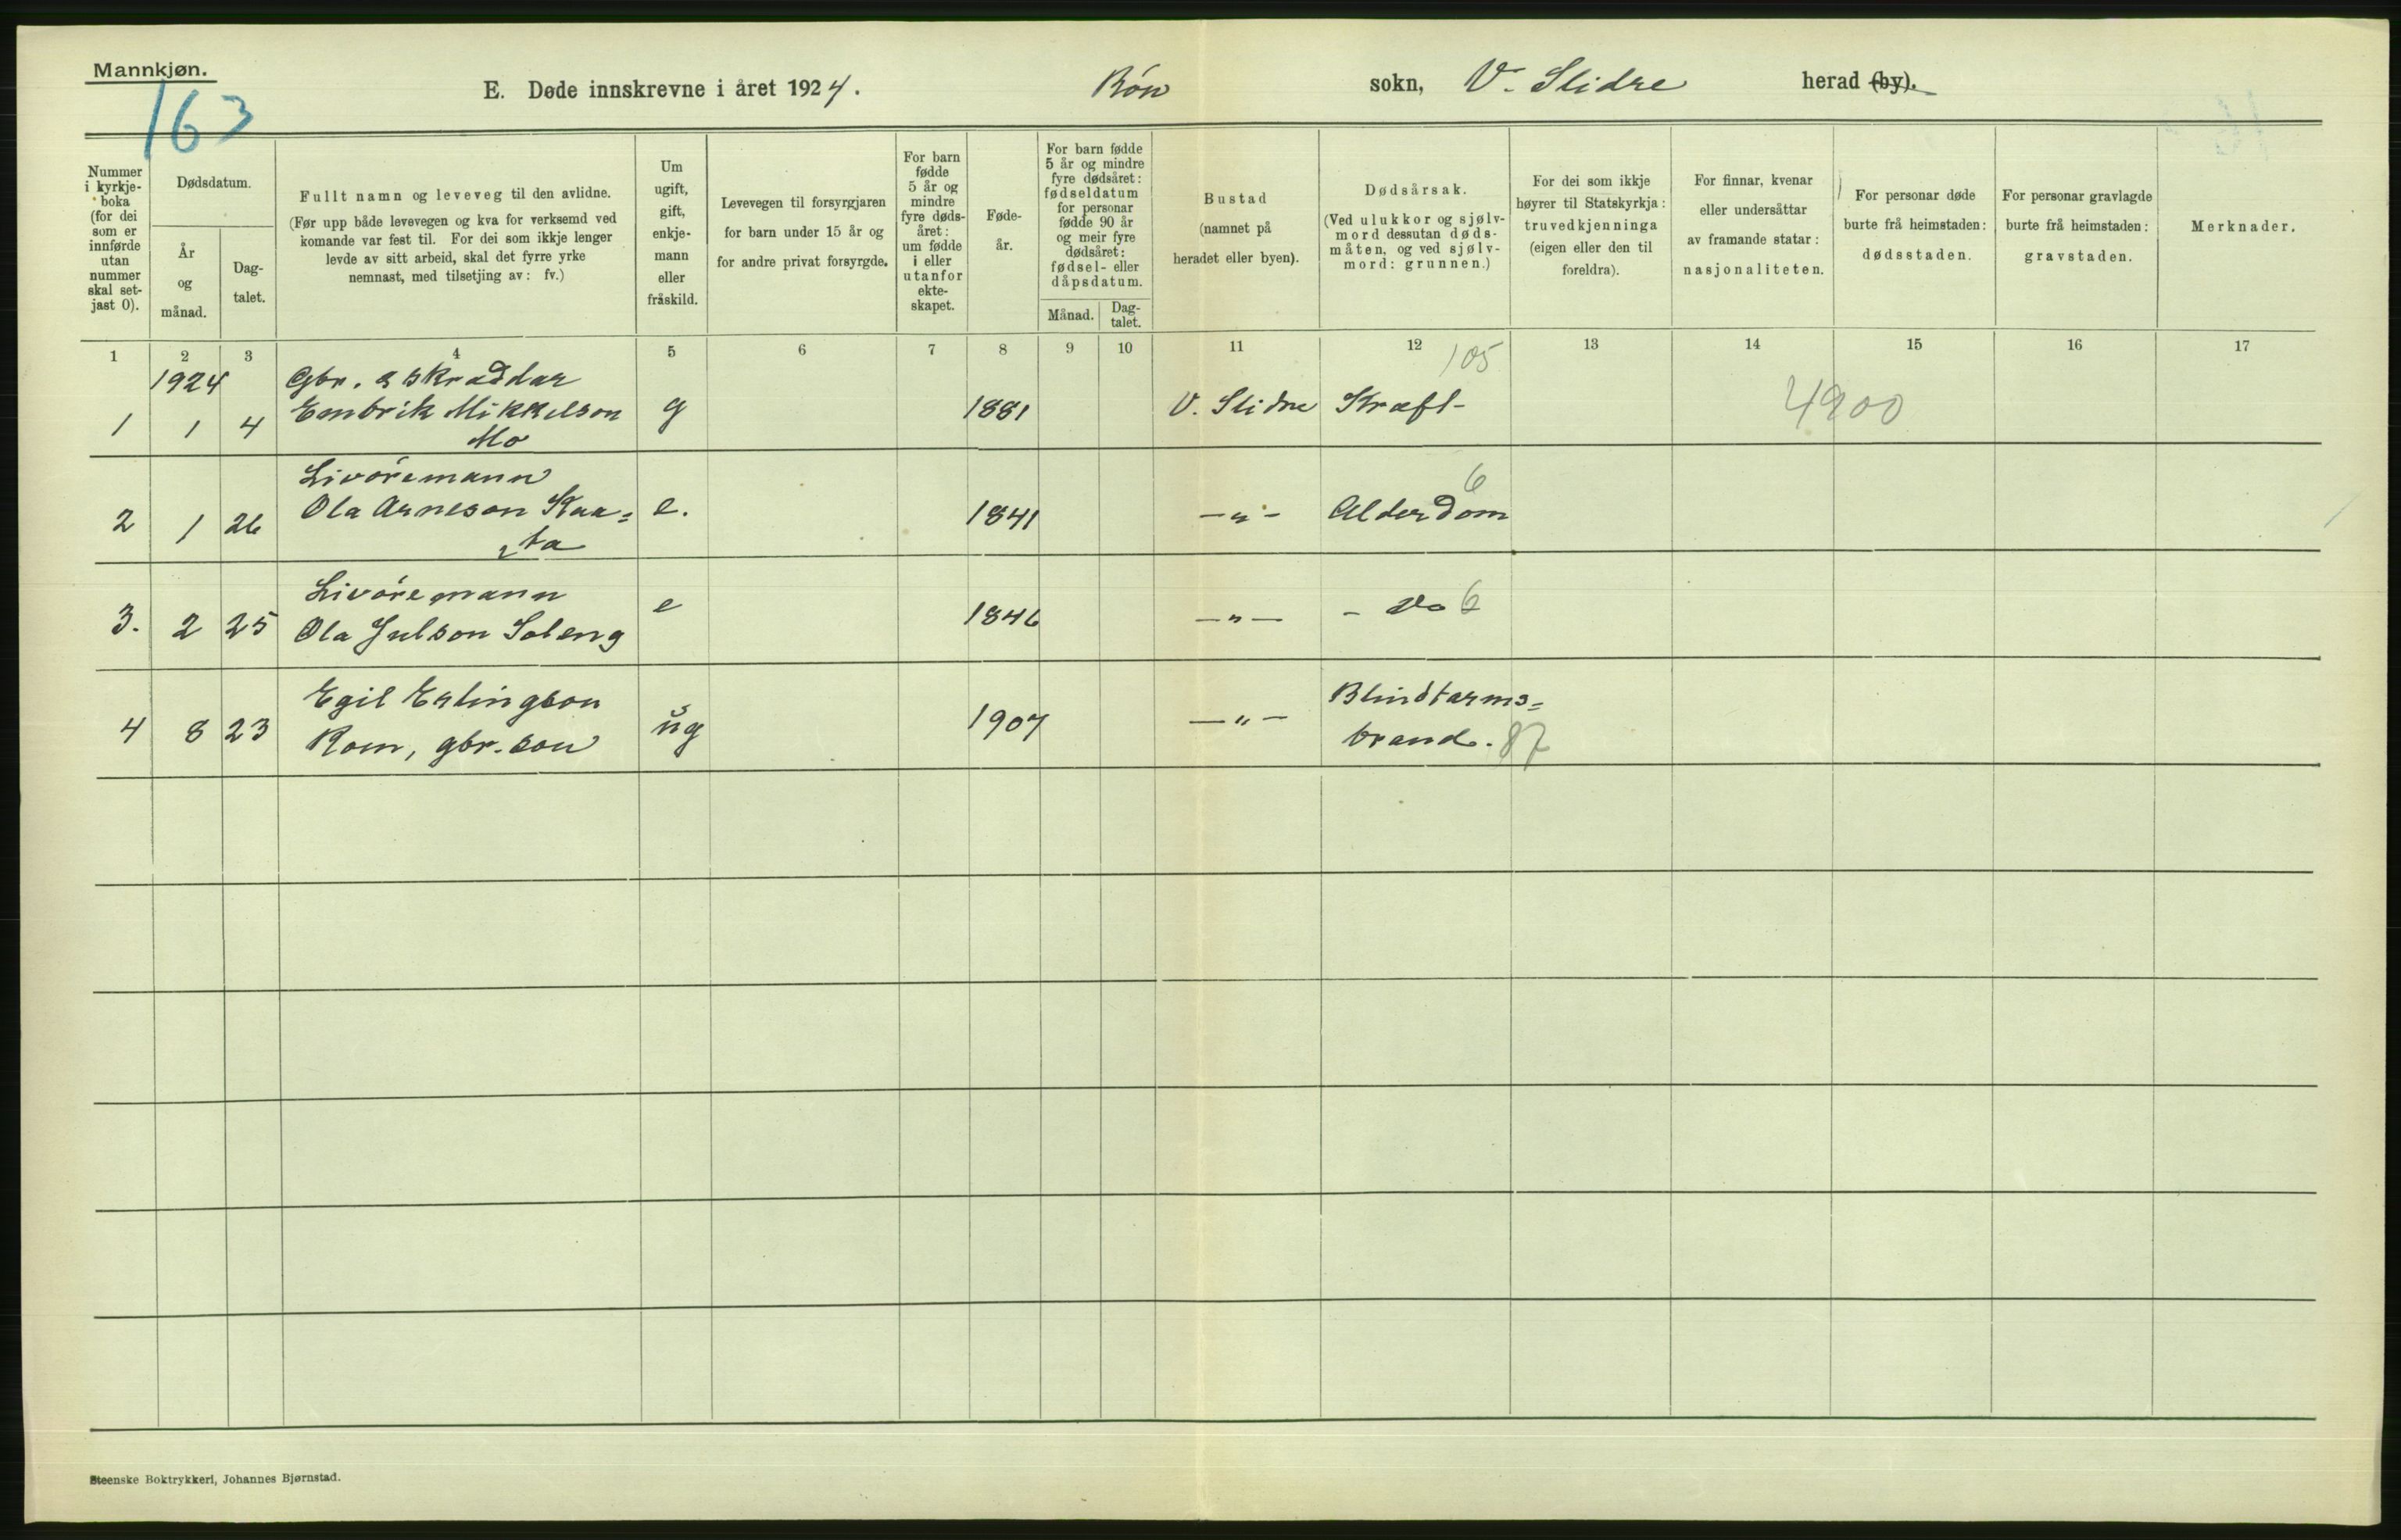 Mannkjøn.
163
E. Døde innskrevne i året 1924. Røn sokn, V. Slidre herad (by).
Nummer i kyrkje-boka (for dei som er innførde utan nummer skal set-jast 0).
Dødsdatum.
År og månad.
Dag-talet.
Fullt namn og leveveg til den avlidne.
(Før upp både levevegen og kva for verksemd ved
komande var fest til. For dei som ikkje lenger
levde av sitt arbeid, skal det fyrre yrke
nemnast, med tilsetjing av: fv.)
Um ugift, gift, enkje-mann eller fråskild.
Levevegen til forsyrgjaren
for barn under 15 år og
for andre privat forsyrgde.
For barn fødde 5 år og mindre fyre døds-året: um fødde i eller utanfor ekte-skapet.
Føde-år.
For barn fødde 5 år og mindre fyre dødsåret: fødseldatum for personar fødde 90 år og meir fyre dødsåret: fødsel- eller dåpsdatum.
Månad.
Dag-talet.
Bustad
(namnet på
heradet eller byen).
Dødsårsak.
(Ved ulukkor og sjølv-
mord dessutan døds-
måten, og ved sjølv-
mord: grunnen.)
For dei som ikkje
høyrer til Statskyrkja:
truvedkjenninga
(eigen eller den til
foreldra).
For finnar, kvenar
eller undersåttar
av framande statar:
nasjonaliteten.
For personar døde
burte frå heimstaden:
dødsstaden.
For personar gravlagde
burte frå heimstaden:
gravstaden.
Merknader.
1 2 3 4 5 6 7 8 9 10 11 12 13 14 15 16 17
1924 Gbr. & skraddar 105
1 1 4 Embrik Mikkelson g 1881 V. Slidre Kræft- 4900
Mo
Livøremann 6
2 1 26 Ola Arneson Kaa= e. 1841 -"- Alderdom
=ta
Livøremann
3. 2 25 Ola Julson Soleng e 1846 -"- - do 6
Egil Erlingson Blindtarms=
4 8 23 Rom, gbr. son ug 1907 -"- brand. 87
Steenske Boktrykkeri, Johannes Bjørnstad.